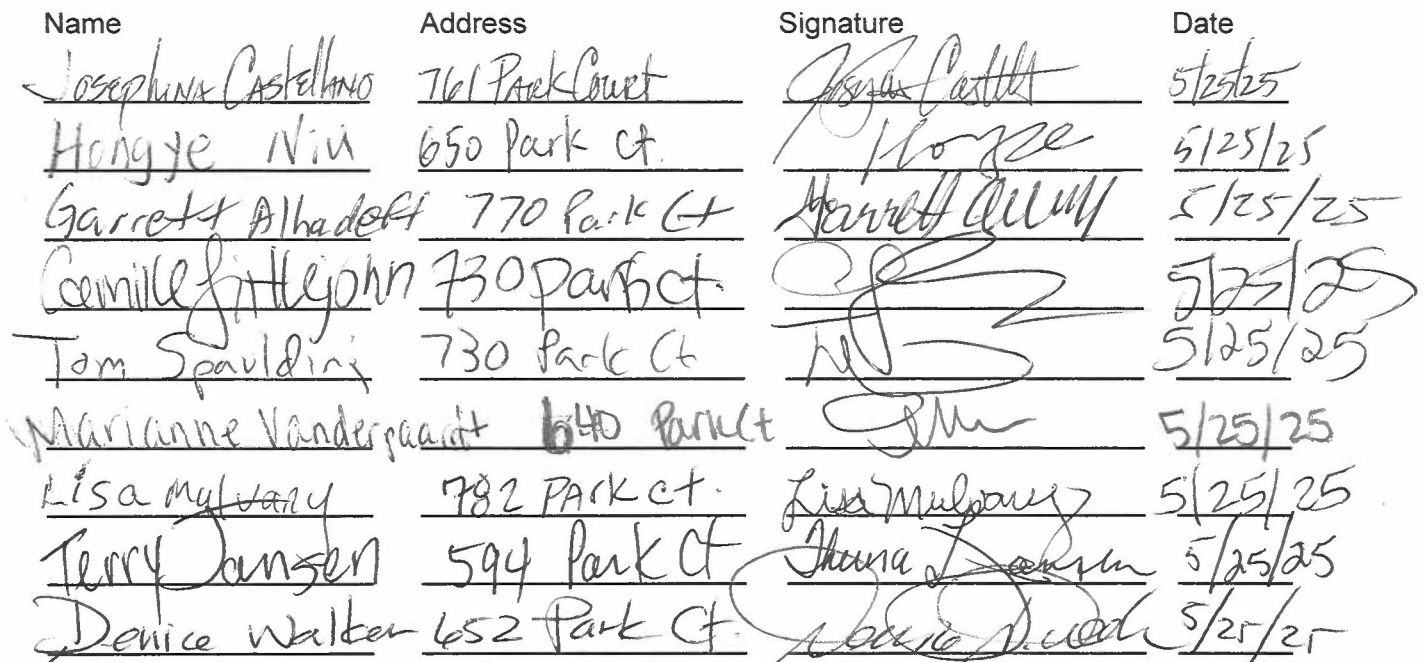 Name Address Signature Date
Josephina Castellano 761 Park Court 5/25/25
Hongye Niu 650 Park ct. Hongye 5/25/25
Garrett Alhadeff 770 Park Ct Garrett 5/25/25
Camille Littlejohn 730 Park ct. 5/25/25
Tom Spaulding 730 Park Ct 5/25/25
Marianne Vandergaardt 640 Park Ct 5/25/25
Lisa Mulvany 782 PArk ct. Lisa Mulvany 5/25/25
Terry Jansen 594 Park Ct Jansen 5/25/25
Denice Walker 652 Park Ct. 5/25/25